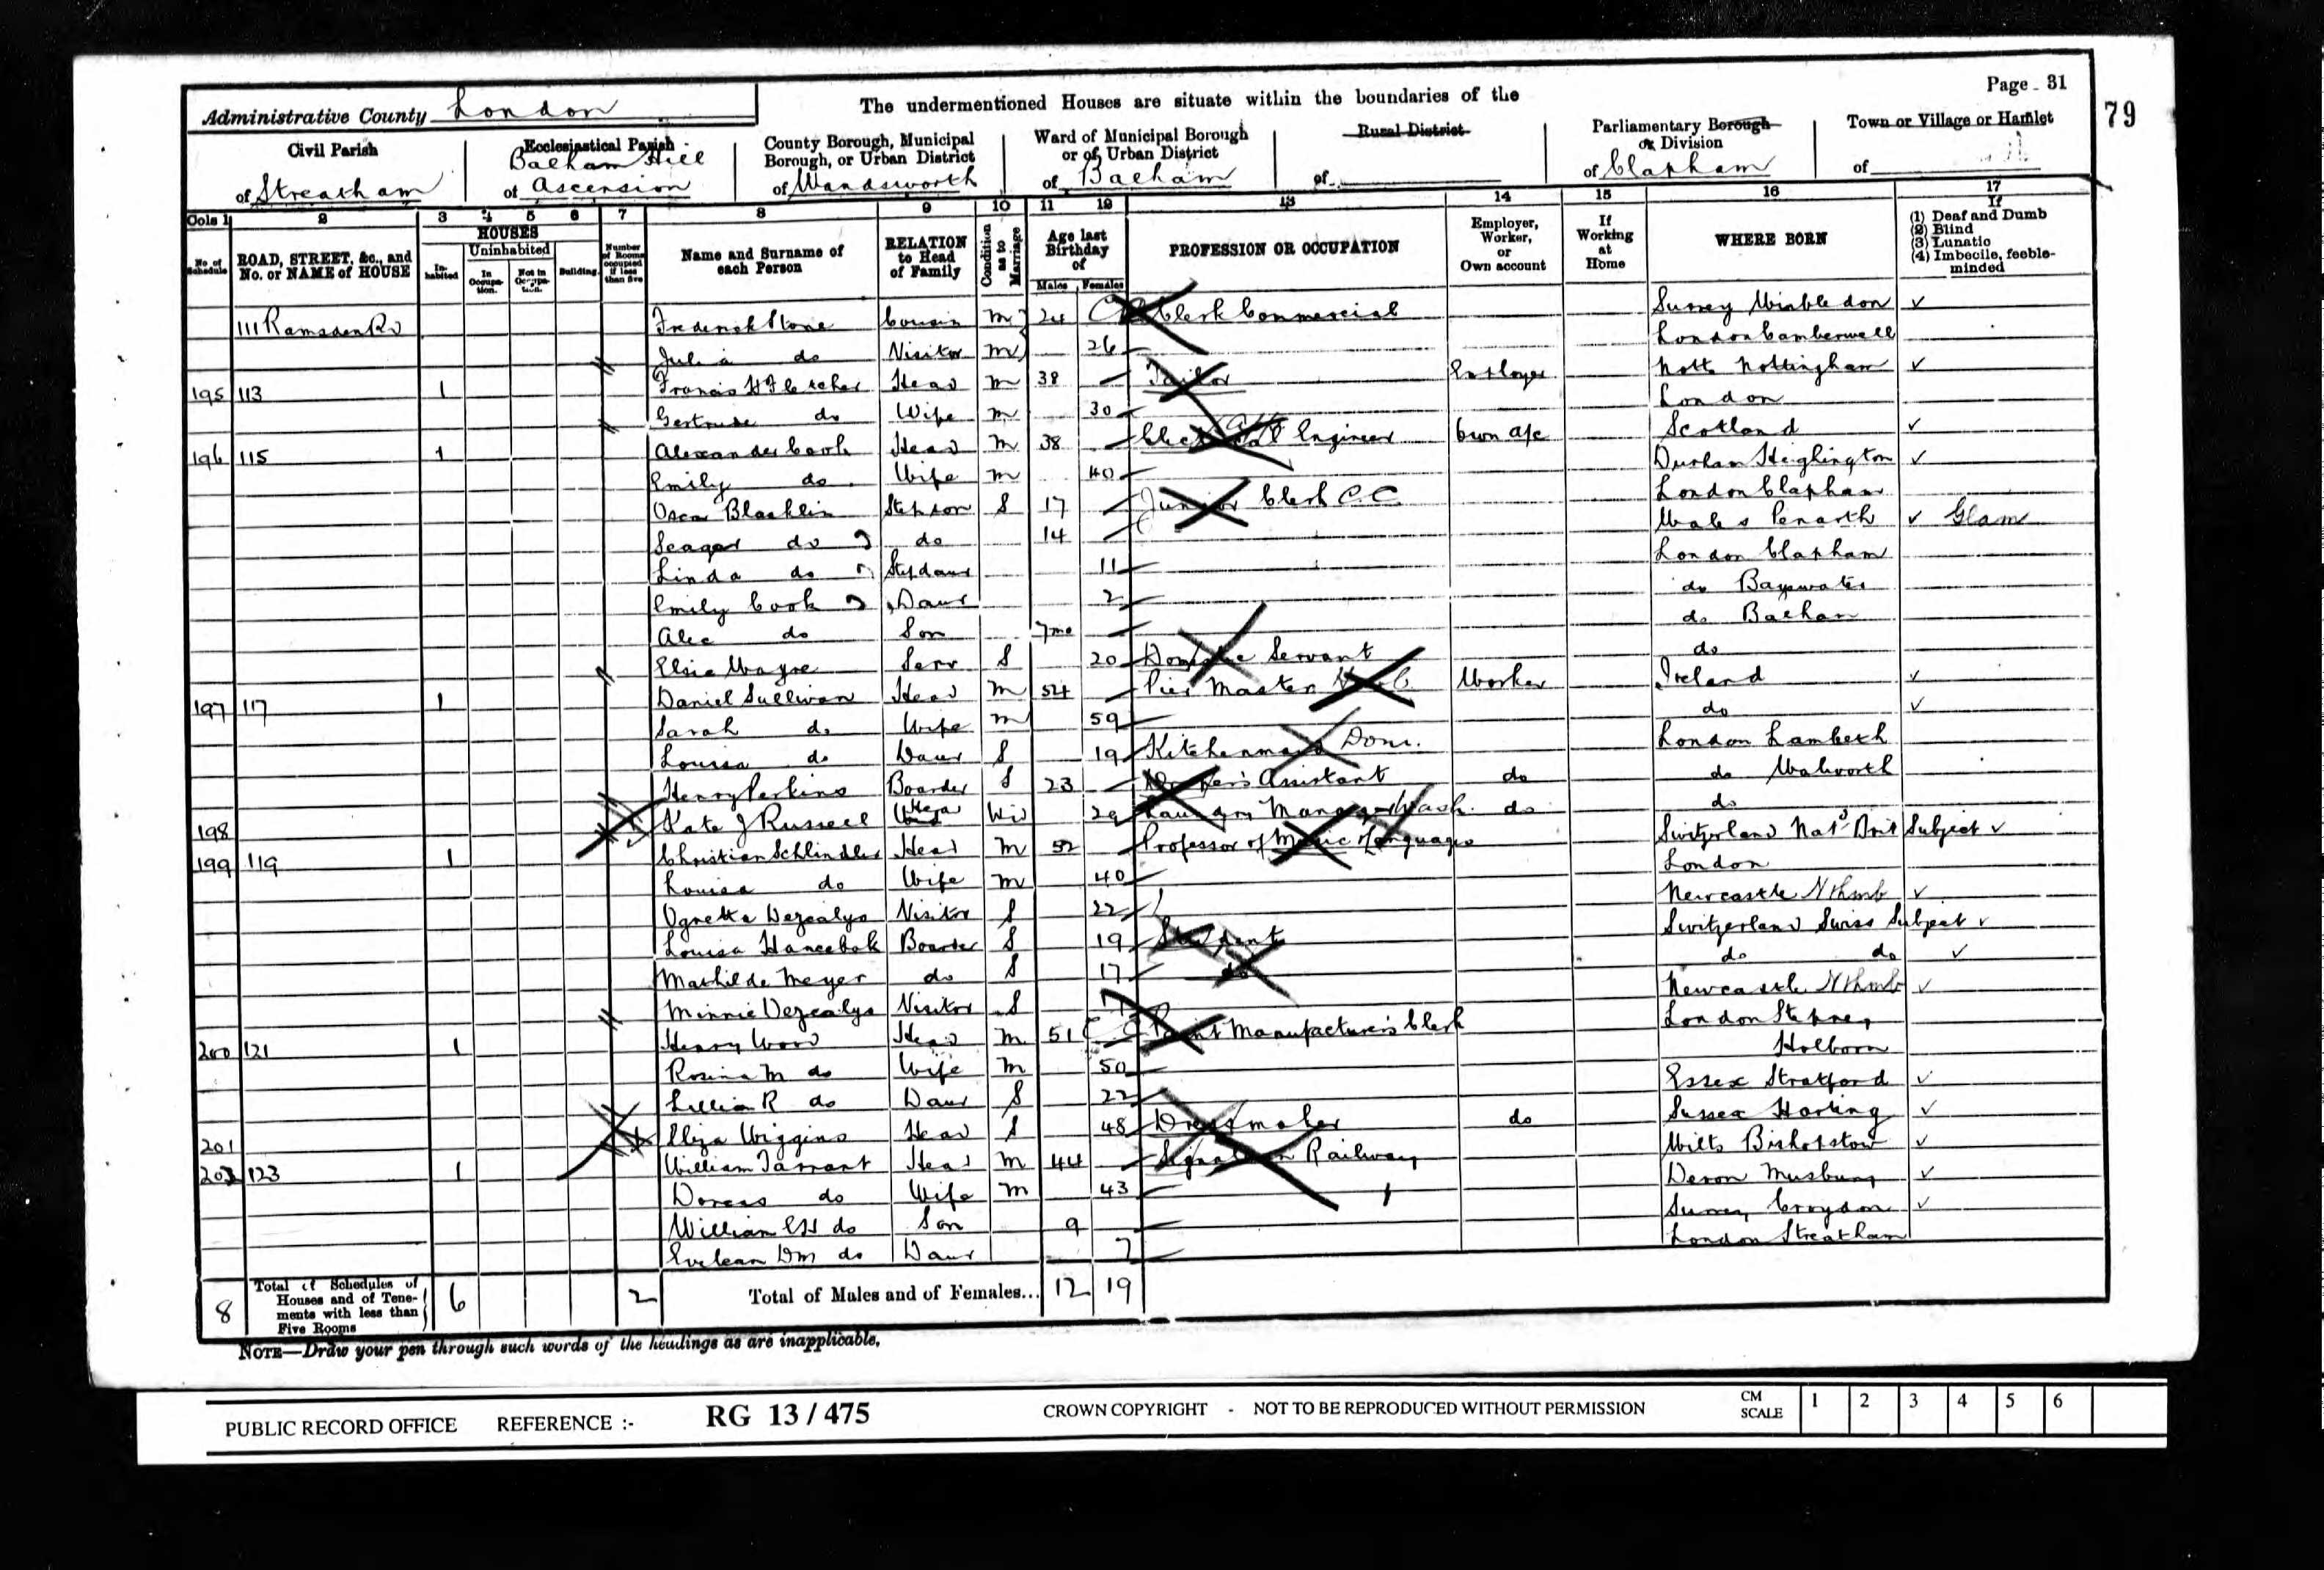 Page 31
79
Administrative County London
The undermentioned Houses are situate within the boundaries of the
Civil Parish of Streatham
Ecclesiastical Parish of Balham Hill Ascension
County Borough, Municipal Borough, or Urban District of Wandsworth
Ward of Municipal Borough or of Urban District of Balham
Rural District of
Parliamentary Borough or Division of Clapham
Town or Village or Hamlet of
Cols 1 2 3 4 5 6 7 8 9 10 11 12 13 14 15 16 17
No. of Schedule
ROAD, STREET, &c., and No. or NAME of HOUSE
HOUSES
Inhabited
Uninhabited
In Occupation.
Not in Occupation.
Building.
Number of Rooms occupied if less than five
Name and Surname of each Person
RELATION to Head of Family
Condition as to Marriage
Age last Birthday of
Males Females
PROFESSION OR OCCUPATION
Employer, Worker, or Own account
If Working at Home
WHERE BORN
If (1) Deaf and Dumb (2) Blind (3) Lunatic (4) Imbecile, feeble-minded
111 Ramsden Rd Frederick Stone Cousin M 24 Clerk Commercial Surrey Wimbledon
Julia do Visitor M 26 London Camberwell
195 113 1 Francis H Fletcher Head M 38 Tailor Employer Notts Nottingham
Gertrude do Wife M 30 London
196 115 1 Alexander Cook Head M 38 Engineer Own a/c Scotland
Emily do Wife M 40 Durham Heighington
Oscar Blacklin Stepson S 17 Junior Clerk C.C. London Clapham
Seager do do 14 Wales Penarth Glam
Linda do Stepdaur 11 London Clapham
Emily Cook Daur 2 do Bayswater
Alec do Son 7mo do Balham
Elsie Wayre Serv S 20 Domestic Servant do
197 117 1 Daniel Sullivan Head M 54 Pier Master Worker Ireland
Sarah do Wife M 59 do
Louisa do Daur S 19 Kitchenmaid Dom. London Lambeth
Henry Perkins Boarder S 23 Draper's Assistant do do Walworth
198 Kate J Russell Head Wid 29 Laundry Manager Wash. do do
199 119 1 Christian Schlindler Head M 52 Professor of Music Languages Switzerland Natd Brit Subject
Louisa do Wife M 40 London
Ugretta Dezealya Visitor S 22 Newcastle Nthmb
Louisa Hancebok Boarder S 19 Student Switzerland Swiss Subject
Mathilde Meyer do S 17 do do do
Minnie Dezealya Visitor S Newcastle Nthmb
200 121 1 Henry Wood Head M 51 Paint Manufacturer's Clerk London Stepney
Rosina M do Wife M 50 Holborn
Lillian R do Daur S 22 Essex Stratford
201 Eliza Wiggins Head S 48 Dressmaker do Sussex Harting
202 123 1 William Tarrant Head M 44 Signalman Railway Wilts Bishopstow
Dorcas do Wife M 43 Devon Musbury
William do Son 9 Surrey Croydon
Evelean D M do Daur 7 London Streatham
8 Total of Schedules of Houses and of Tenements with less than Five Rooms 6 2 Total of Males and of Females... 12 19
NOTE—Draw your pen through such words of the headings as are inapplicable.
PUBLIC RECORD OFFICE REFERENCE :- RG 13 / 475 CROWN COPYRIGHT - NOT TO BE REPRODUCED WITHOUT PERMISSION CM SCALE 1 2 3 4 5 6